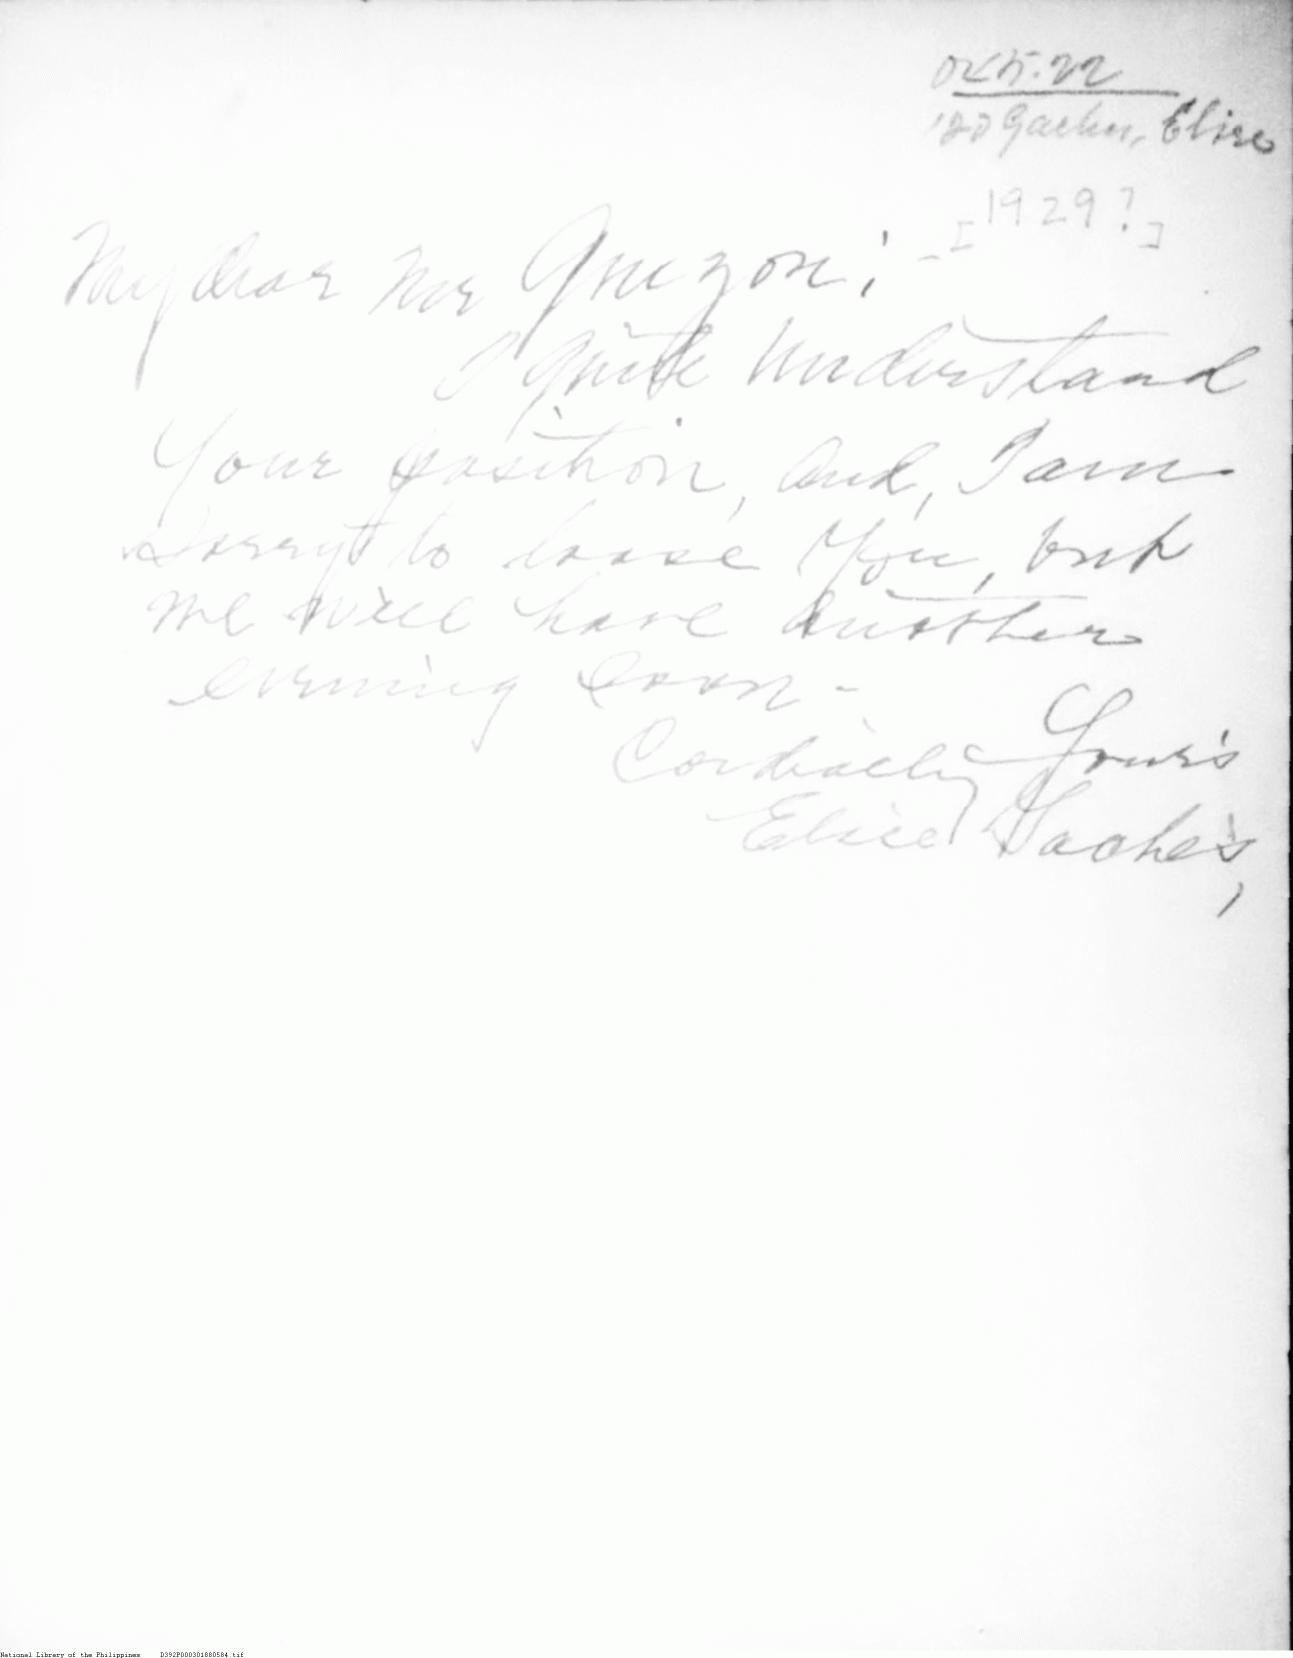 Elise
[1929?]
My dear Mr Quezon;
I quite understand
Your position, and, I am
sorry to loose You, but
we will have another
evening soon -
Cordially Your's
Elise Gaches,
National Library of the Philippines D392P000301880584.tif